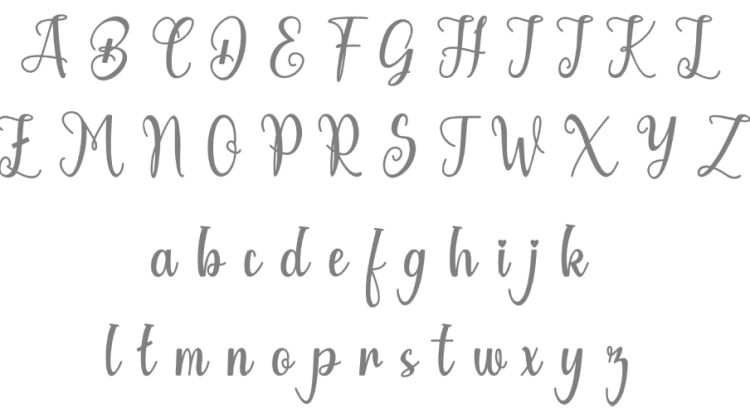 A B C D E F G H I J K L
Ł M N O P R S T W X Y Z
a b c d e f g h i j k
l ł m n o p r s t w x y z